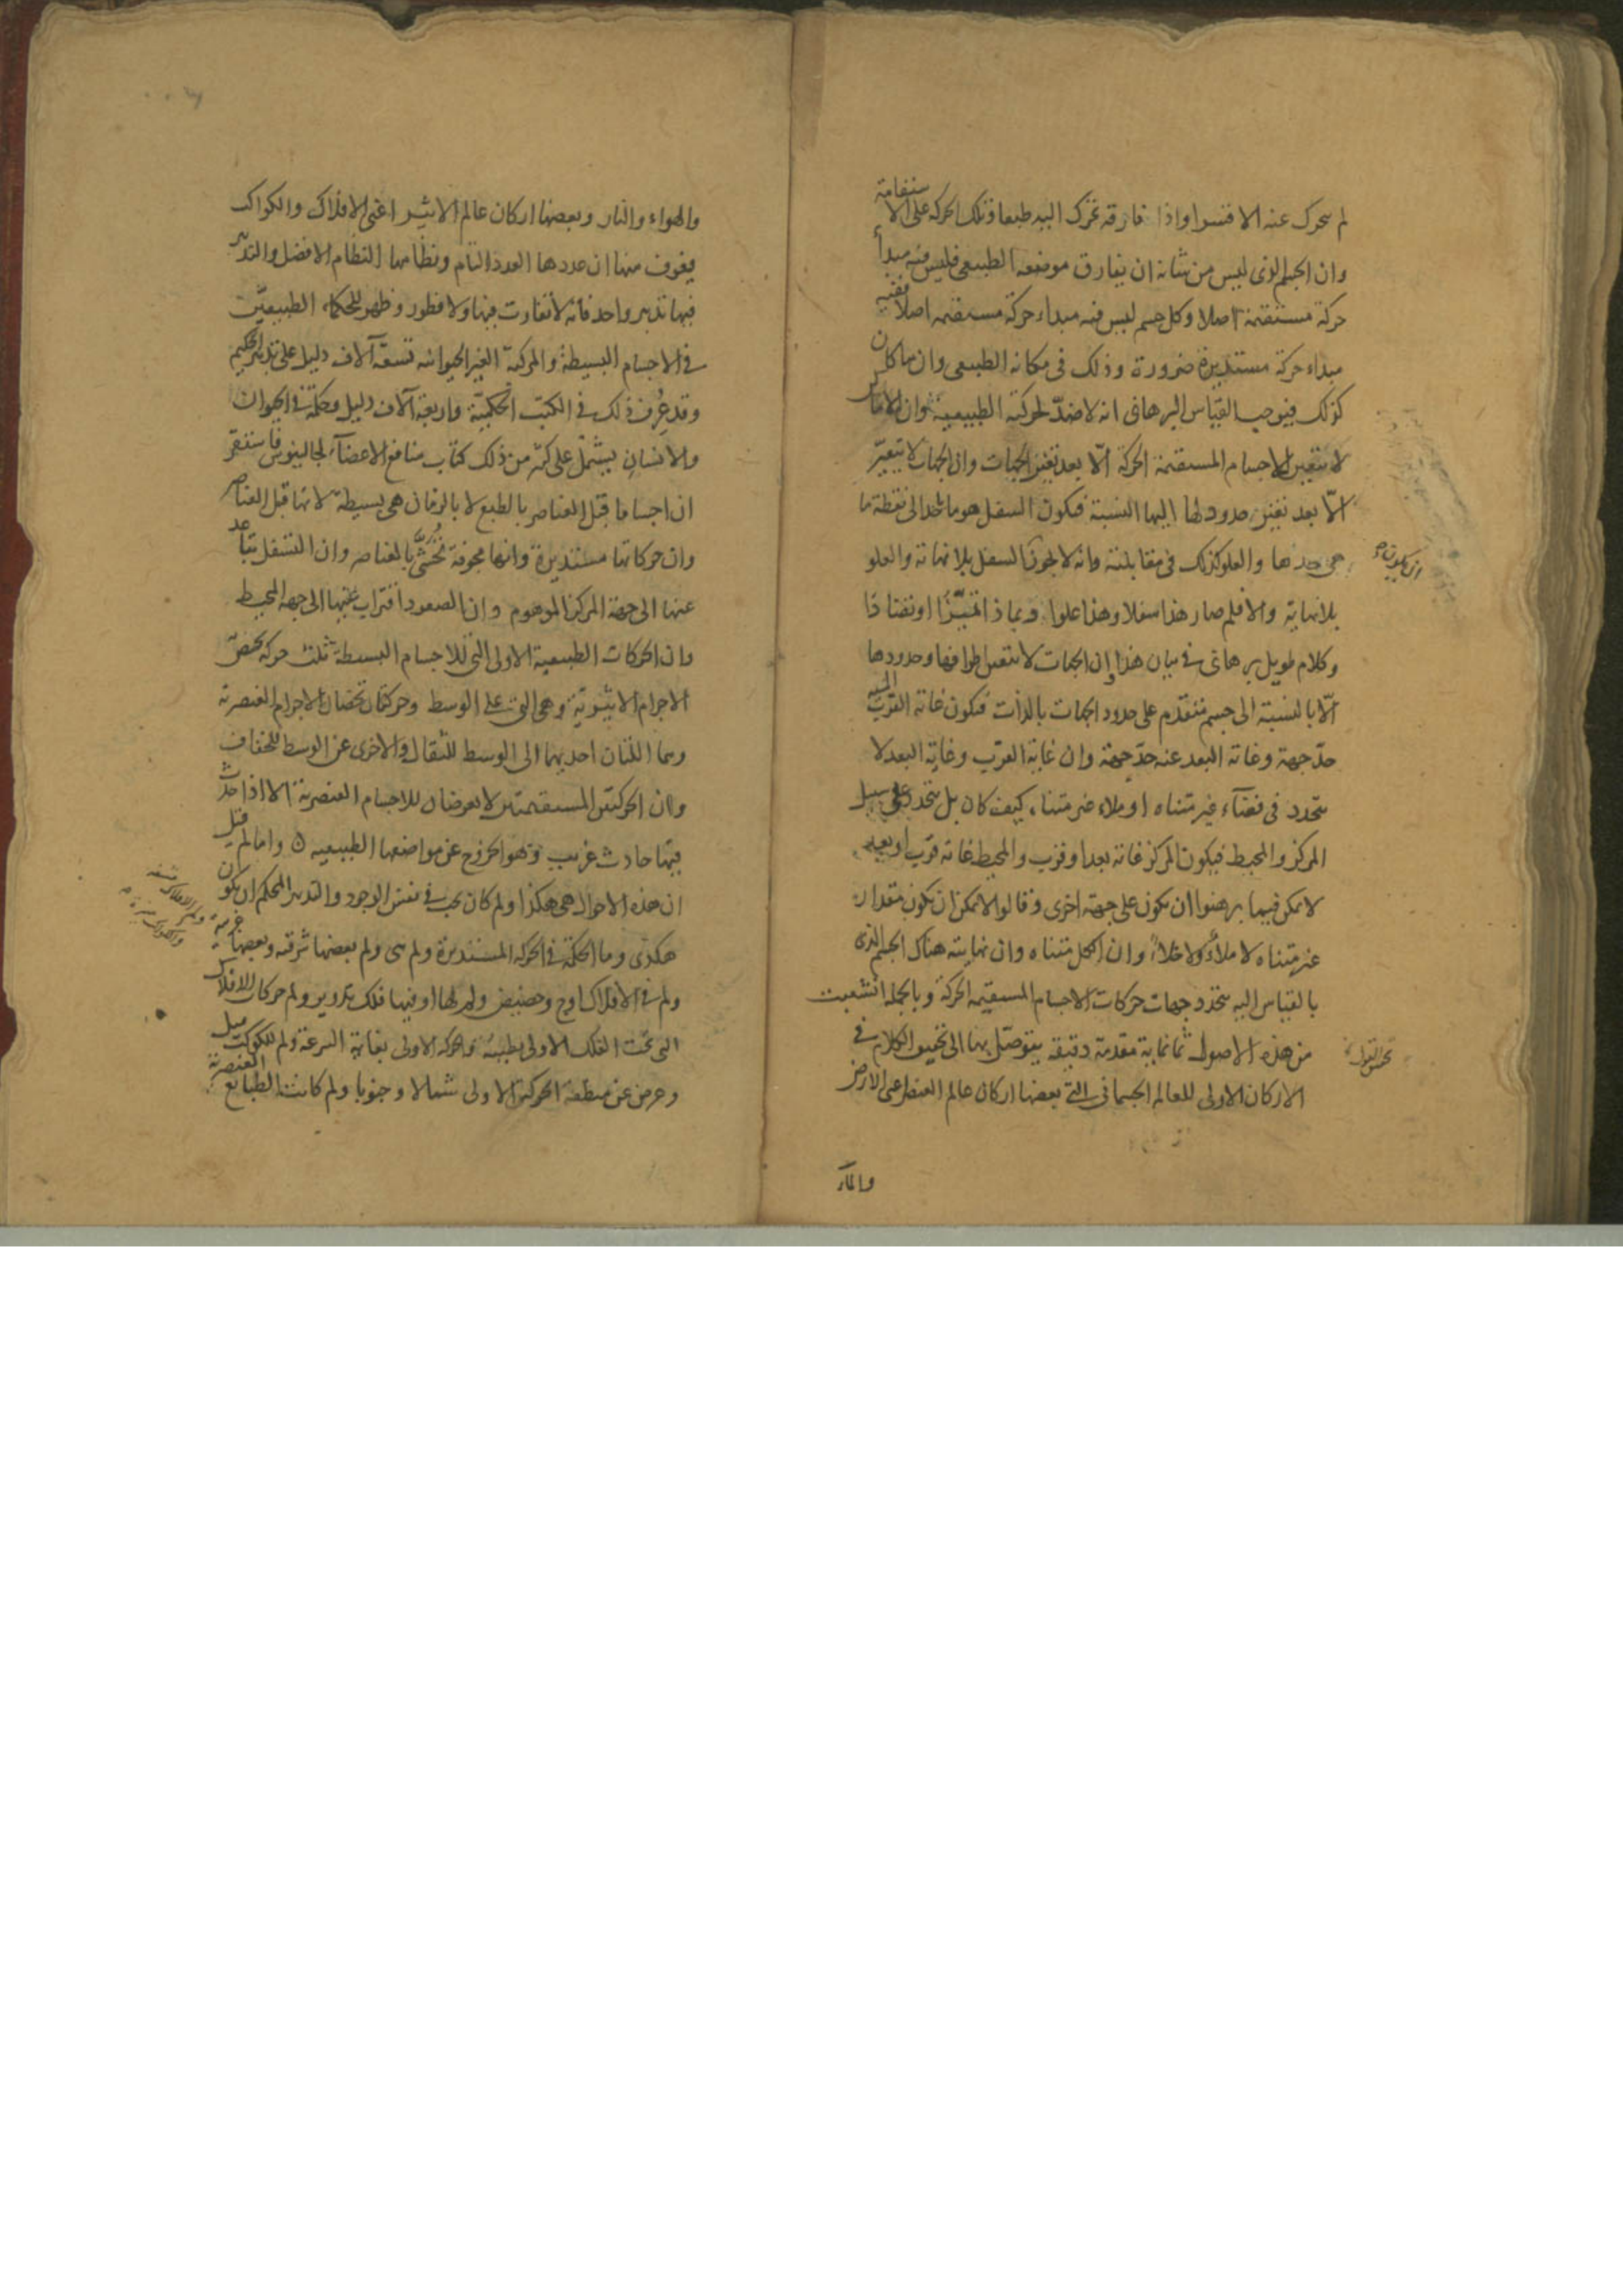 لم يتحرك عنه الا قسرا واذا فارقه تحرك اليه طبعا وتلك الحركة على الاستقامة
وان الجسم الذى ليس من شانه ان يفارق موضعه الطبيعى فليس فيه مبدأ
حركة مستقيمة اصلا وكل جسم ليس فيه مبداء حركة مستقيمه اصلا ففيه
مبداء حركة مستديرة ضرورة وذلك فى مكانه الطبيعى وان ما كان
كذلك فيوجب القياس البرهانى انه لا ضدّ لحركته الطبيعية وان الاماكن
لا تتعين للاجسام المستقيمة الحركة الّا بعد تعين الجهات وان الجهات لا تتعيّن
الّا بعد تعين حدود لها اليها النسبة فيكون السفل هو ما يلى الى نقطة ما
هى حدها والعلو كذلك فى مقابلته وانه لا يجوز السفل بلا نهاية والعلو
ان يكون
بلا نهاية والا فلم صار هذا سفلا وهذا علوا وبماذا تميّزا او تضادا
وكلام طويل برهانى فى بيان هذا وان الجهات لا تتعين اطرافها وحدودها
الّا بالنسبة الى جسم متقدّم على حدود الجهات بالذات فيكون غاية القرب اليه
حدّ جهة وغاية البعد عنه حدّ جهة وان غاية القرب وغاية البعد لا
تتحدد فى فضآء غير متناه او ملاء غير متناه كيف كان بل تتحدد على سبيل
المركز والمحيط فيكون المركز غاية بعد او قرب والمحيط غاية قرب او بعد
لا يمكن فيما برهنوا ان يكون على جهة اخرى وقالوا لا يمكن ان يكون مقدار
غير متناه لا ملأً ولا خلاً وان الكل متناه وان نهايته هناك الجسم الذى
بالقياس اليه تتحدد جهات حركات الاجسام المستقيمة الحركة وبالجملة انشعبت
من هذه الاصول ثمانماية مقدمة دقيقة يتوصّل بها الى تحقيق الكلام فى
الاركان الاولى للعالم الجسمانى التى بعضها اركان عالم العنصر اعنى الارض
والمآء
والهواء والنار وبعضها اركان عالم الاثير اعنى الافلاك والكواكب
يعرف منها ان عددها العدد التام ونظامها النظام الافضل والتدبير
فيها تدبير واحد فانه لا تفاوت فيها ولا فطور وظهر للحكماء الطبيعيّين
فى الاجسام البسيطة والمركبة الغير الحيوانيه تسعة آلاف دليل على تدبير الحكيم
وقد عُرف ذلك فى الكتب الحكمية واربعة آلاف دليل وحكمة فى الحيوان
والانسان يشتمل على كثير من ذلك كتاب منافع الاعضآء لجالينوس فاستقر
ان اجساما قبل العناصر بالطبع لا بالزمان هى بسيطة لانها قبل العناصر
وان حركاتها مستديرة وانها مجوفة تُحْشَى بالعناصر وان التسفل تباعد
عنها الى جهة المركز الموهوم وان الصعود اقتراب منها الى جهة المحيط
وان الحركات الطبيعية الاولى التى للاجسام البسيطة ثلث حركة تختصّ
الاجرام الاثيرية وهى التى على الوسط وحركتان تخصان الاجرام العنصرية
وهما اللتان احديهما الى الوسط للثقال والاخرى عن الوسط للخفاف
وان الحركتين المستقيمتين لا يعرضان للاجسام العنصرية الا اذا حدث
فيها حادث غريب وهو الخروج عن مواضعها الطبيعيه واما لم قيل
ان هذه الاحوال هى هكذا ولم كان يجب فى نفس الوجود والتدبير المحكم ان يكون
هكذى وما الحكمة فى الحركة المستديرة ولم هى ولم بعضها شرقيه وبعضها غربية
ولم فى الافلاك اوج وحضيض ولم لها او فيها فلك تدوير ولم حركات الافلاك
التى تحت الفلك الاولى بطيئة والحركة الاولى بغاية السرعة ولم للكوكب ميل
وعرض عن منطقة الحركة الاولى شمالا وجنوبا ولم كانت الطبايع العنصرية